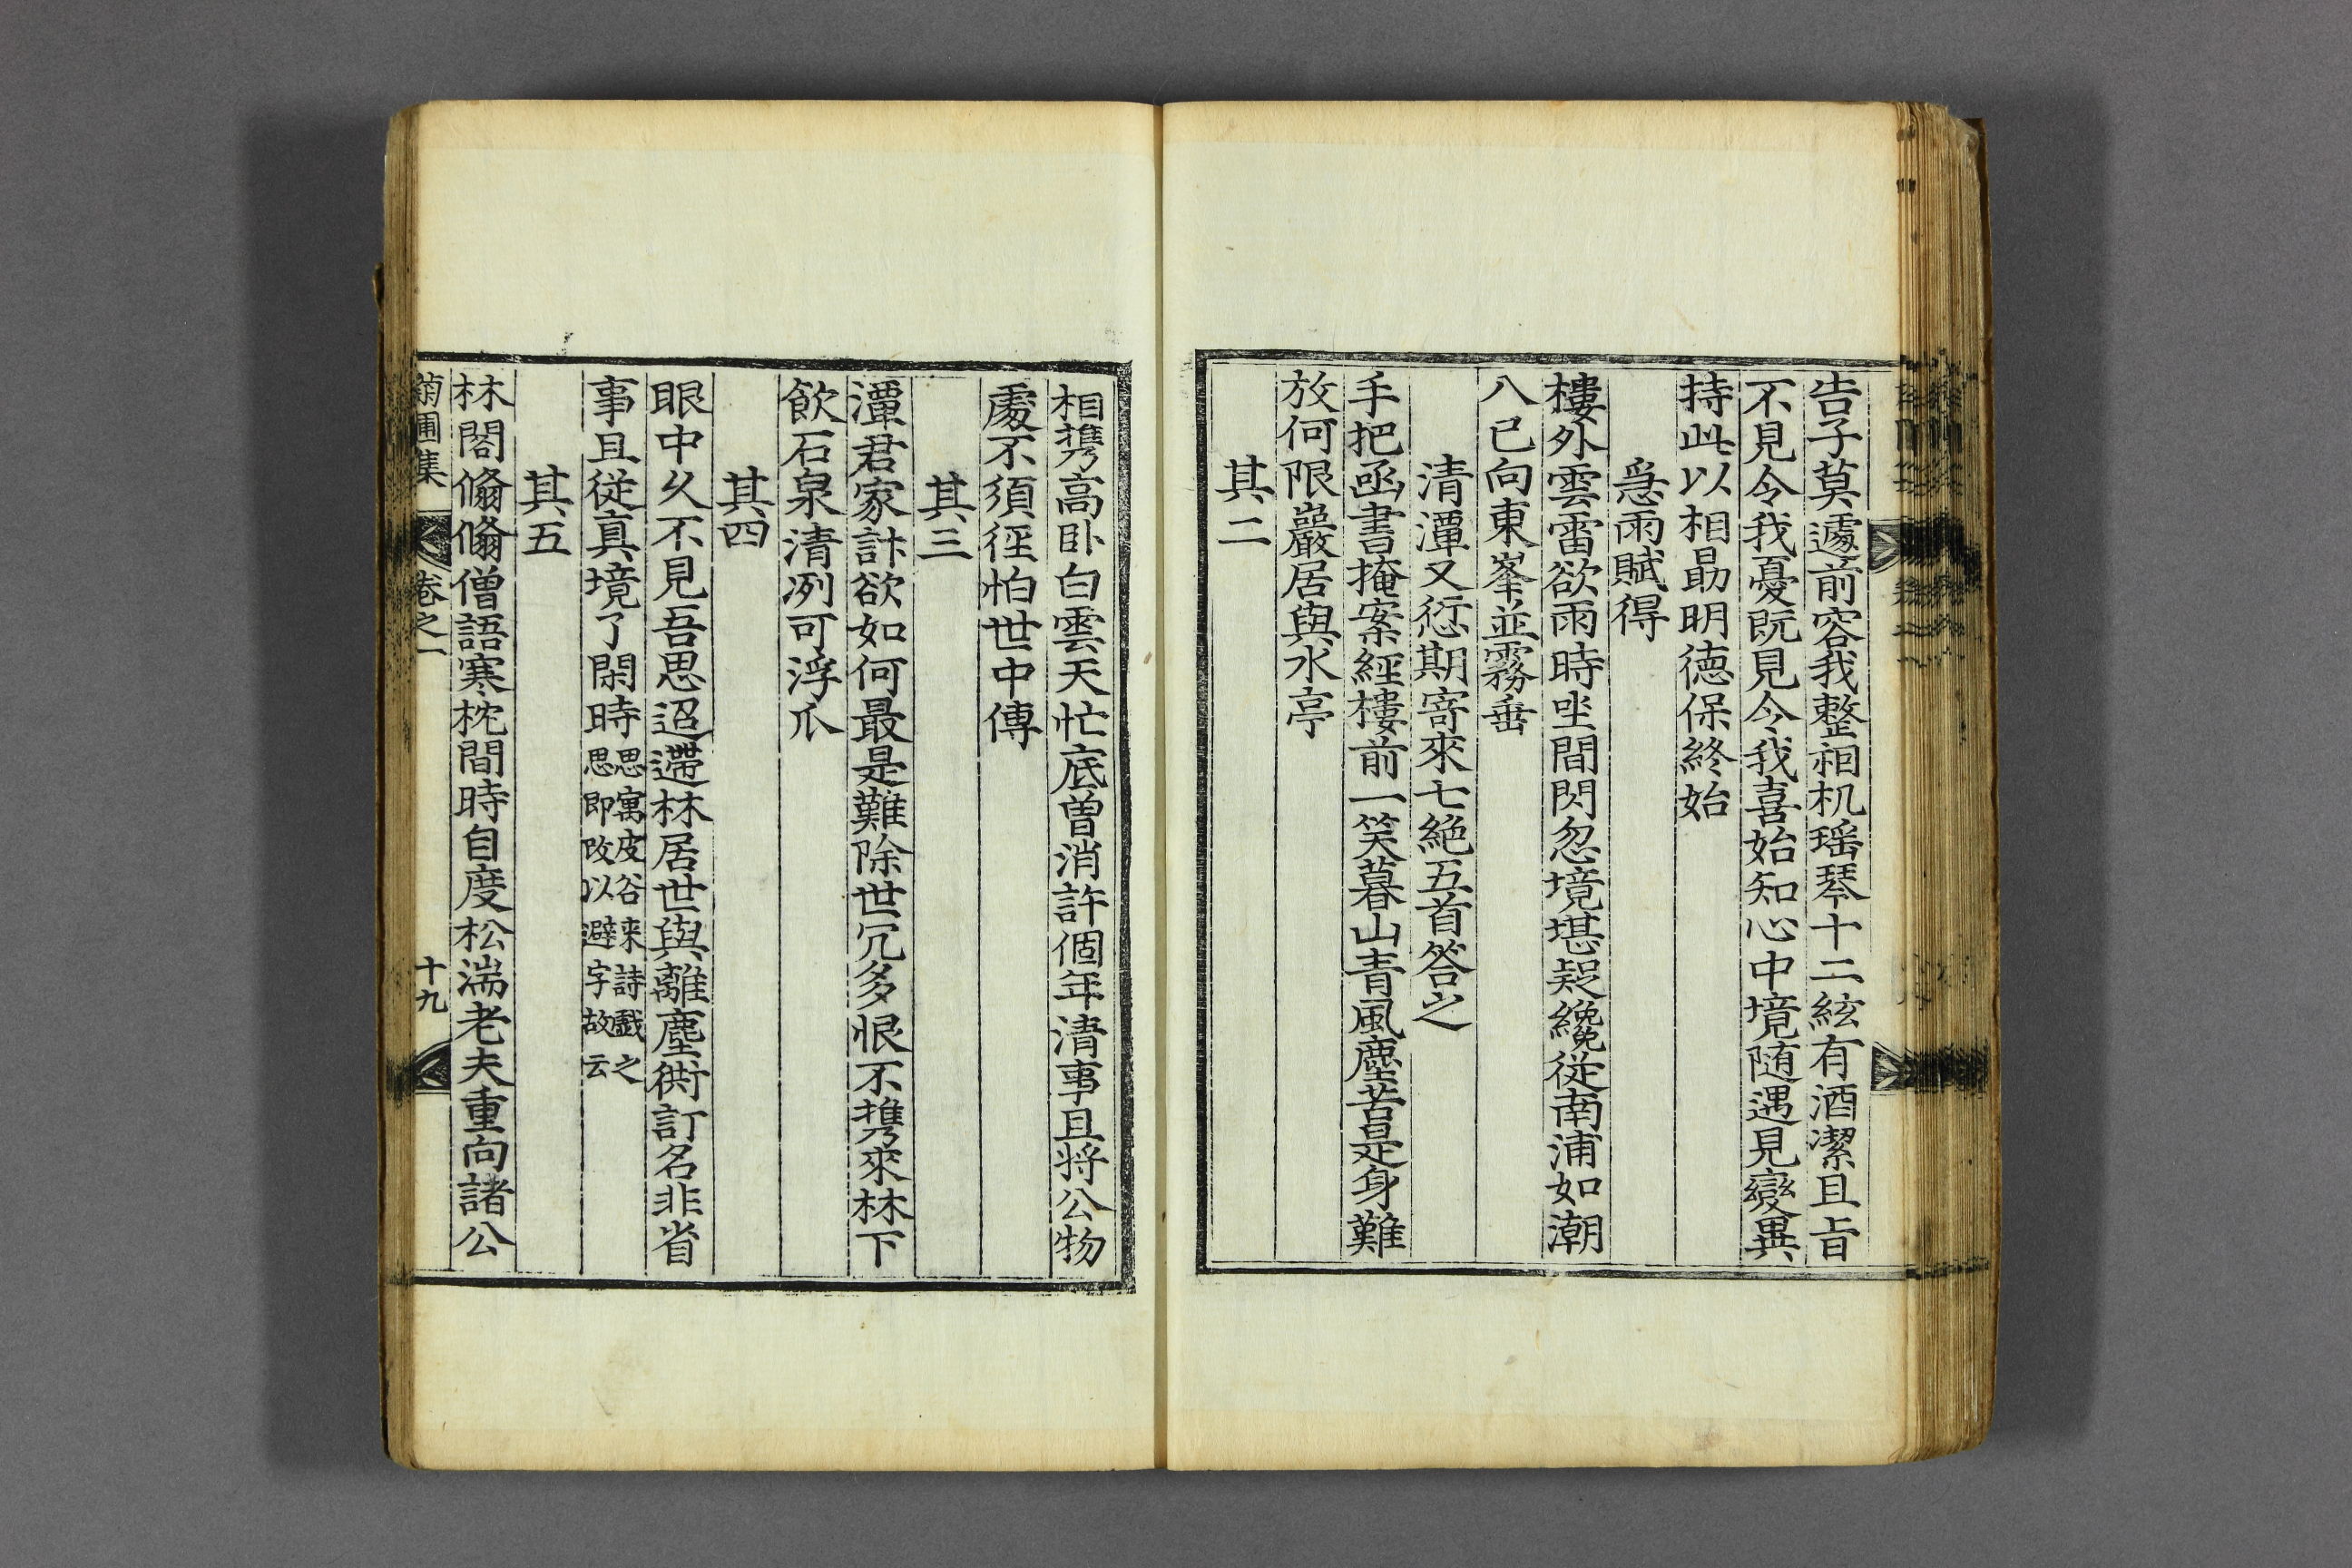 告子莫遽前容我整相机瑶琴十二絃有酒潔且旨
不見令我憂既見令我喜始知心中境随遇見變異
持此以相勗明德保終始
急雨賦得
樓外雲雷欲雨時坐間閃忽境堪疑纔從南浦如潮
八已向東峯並霧垂
清潭又愆期寄來七絶五首答之
手把函書掩案經樓前一笑暮山青風塵苦是身難
放何限巖居與水亭
其二
相携高卧白雲天忙底曾消許個年清事且將公物
處不須徑怕世中傳
其三
潭君家計欲如何最是難除世冗多恨不携來林下
飲石泉清冽可浮爪
其四
眼中久不見吾思迢遰林居世與離塵衖訂名非省
事且從真境了閑時思寓皮谷来詩戱之
思即改以避字故云
其五
林閣翛翛僧語寒枕間時自度松湍老夫重向諸公
菊圃集 卷之一 十九